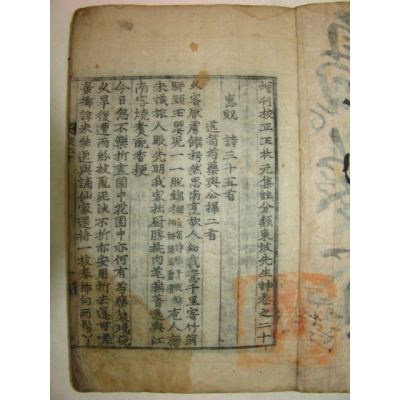 增刊校正王狀元集註分類東坡先生詩卷之二十
惠貺 詩三十五首
送筍芍藥與公擇二首
久客厭虜饌枵然思南烹故人知我意千里寄竹萌
駢頭玉嬰兒一一脫錦䙀 庖人應
未識旅人眼先明我家拙厨膳彘肉芼蕪菁送與江
南客燒煮配香粳
今日忽不樂折盡園中花園中亦何有芍藥裊殘葩
久旱復遭雨紛披亂泥沙不折亦安用折去還可嗟
棄擲諒未能送與謫仙家還將一枝春插向兩髻丫